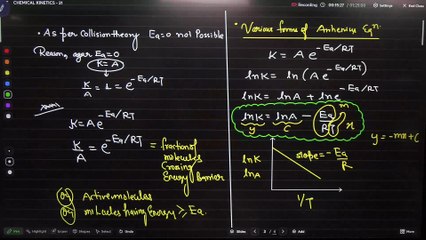 CHEMICAL KINETICS - 21
Recording
• As per Collision theory Ea=0 not Possible
Reason, agar Ea=0
K=A
K/A = 1 = e^-Ea/RT
K=Ae^-Ea/RT
K/A = e^-Ea/RT = fraction of molecules Crossing Energy Barrier
OR Active molecules
OR molecules having Energy ≥ Ea.
• Various forms of Arrhenius Eqⁿ.
K = A e^-Ea/RT
lnK = ln(A e^-Ea/RT)
lnK = lnA + ln e^-Ea/RT
lnK = lnA - Ea/RT
y c m x
y = -mx+c
slope = -Ea/R
lnK
lnA
1/T